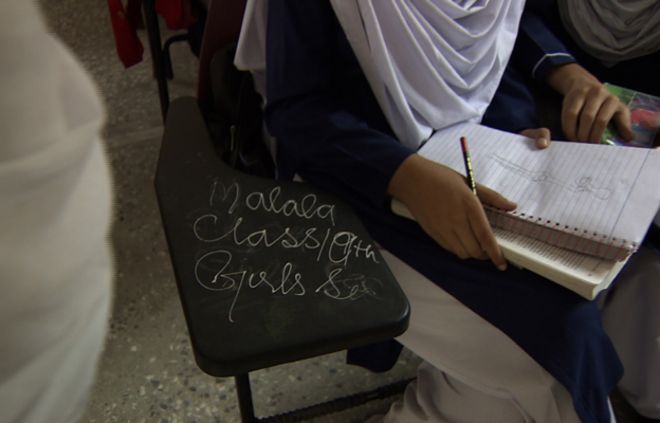 Malala
Class/9th
Girls